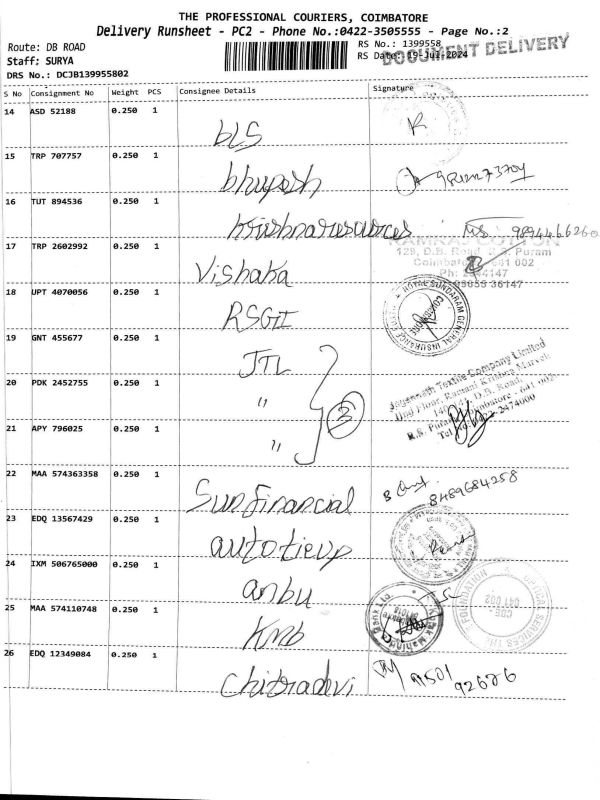 THE PROFESSIONAL COURIERS, COIMBATORE
Delivery Runsheet - PC2 - Phone No.:0422-3505555 - Page No.:2
Route: DB ROAD
RS No.: 1399558
DOCUMENT DELIVERY
Staff: SURYA
RS Date: 19-Jul-2024
DRS No.: DCJB139955802
S No Consignment No Weight PCS Consignee Details Signature
14 ASD 52188 0.250 1
bLS
15 TRP 707757 0.250 1
bhupesh
16 TUT 894536 0.250 1
krishnaresources 9894466260
RAMRAJ COTTON
17 TRP 2602992 0.250 1
129, D.B. Road, R.S. Puram
Vishaka
18 UPT 4070056 0.250 1
RSGII
ROYAL SUNDARAM GENERAL INSURANCE
COIMBATORE
19 GNT 455677 0.250 1
JTL
Jagannath Textile Company Limited
IInd Floor, Ramani Krishna
20 PDK 2452755 0.250 1
"
3
21 APY 796025 0.250 1
"
22 MAA 574363358 0.250 1
Sunfinancial
8489684258
23 EDQ 13567429 0.250 1
autotieup
24 IXM 506765000 0.250 1
anbu
25 MAA 574110748 0.250 1
KMB
26 EDQ 12349084 0.250 1
Chitradevi